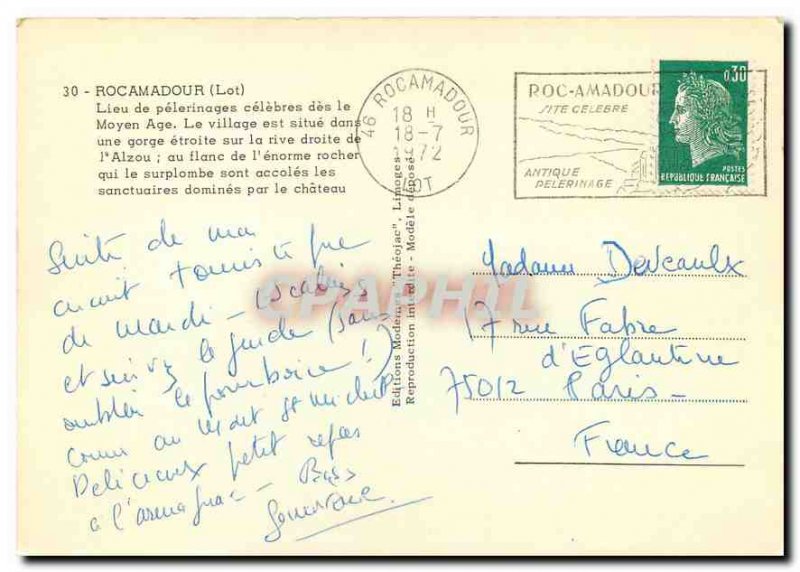 30 - ROCAMADOUR (Lot)
Lieu de pélerinages célèbres dès le
Moyen Age. Le village est situé dans
une gorge étroite sur la rive droite de
l'Alzou ; au flanc de l'énorme rocher
qui le surplombe sont accolés les
sanctuaires dominés par le château
46 ROCAMADOUR
18 H
18-7
1972
LOT
ROC-AMADOUR
SITE CELEBRE
ANTIQUE
PELERINAGE
0,30
POSTES
REPUBLIQUE FRANÇAISE
Editions Modernes "Théojac", Limoges
Reproduction interdite - Modèle déposé
CPAPHIL
Suite de ma
touristique
de mardi -
et suivez le guide (sans
oublier le pourboire !)
comme au Mont St Michel
Délicieux petit repas
à l'armagnac - Bises
Madame Devcaulx
17 rue Fabre
d'Eglantine
75012 Paris -
France